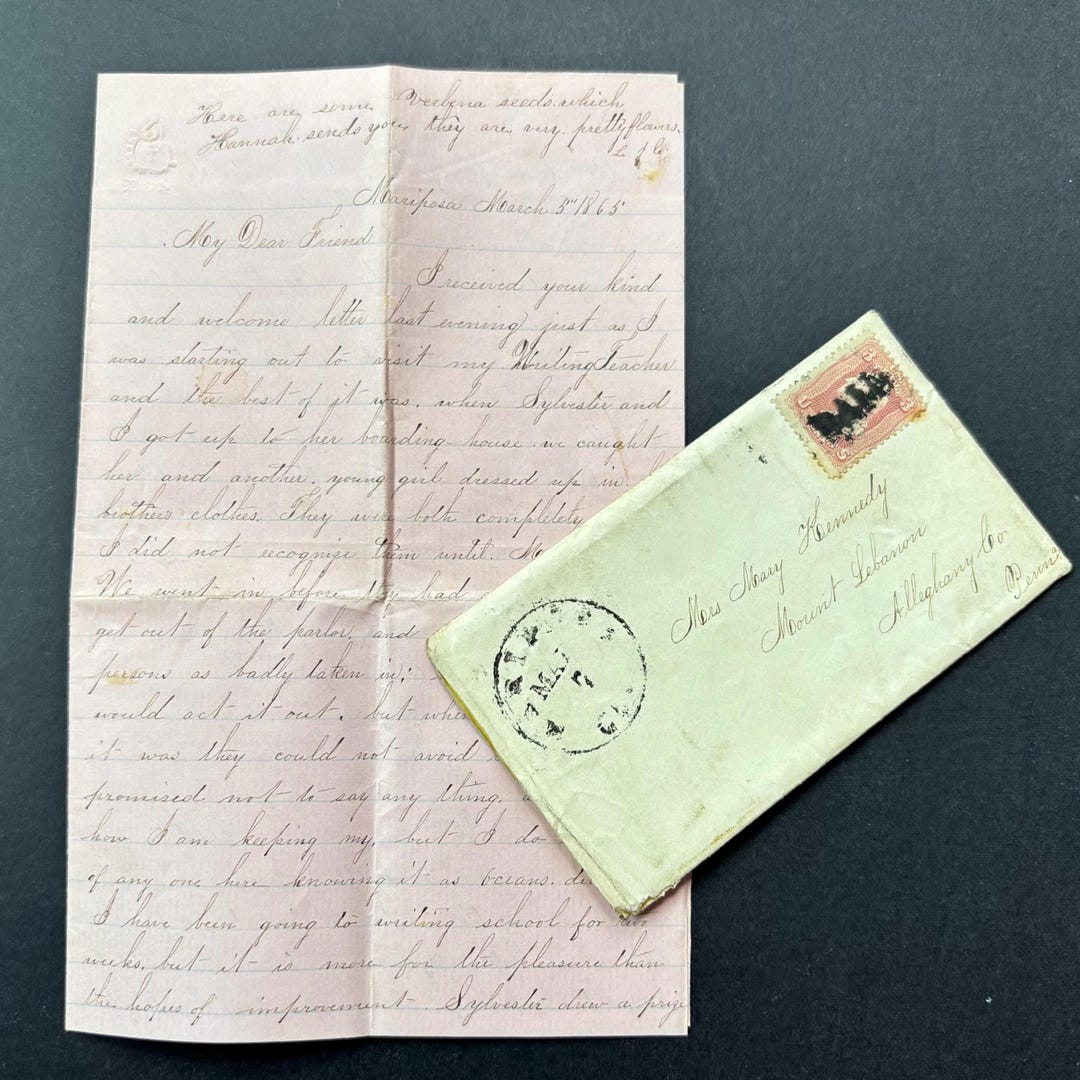 Here are some Verbena seeds which
Hannah sends you they are very pretty flowers.
Mariposa March 5" 1865
My Dear Friend
I received your kind
and welcome letter last evening just as I
was starting out to visit my Writing Teacher
and the best of it was, when Sylvester and
I got up to her boarding house we caught
her and another young girl dressed up in
brothers clothes. They were both completely
I did not recognise them until
We went in before they had
get out of the parlor, and
persons as badly taken in;
would act it out, but when
it was they could not avoid
promised not to say any thing,
how I am keeping my, but I do
of any one here knowing it as oceans
I have been going to writing school for two
weeks, but it is more for the pleasure than
the hopes of improvement. Sylvester drew a prize
PAID
3 3
Mrs Mary Kennedy
Mount Lebanon
Alleghany Co
Penna
MAR
7